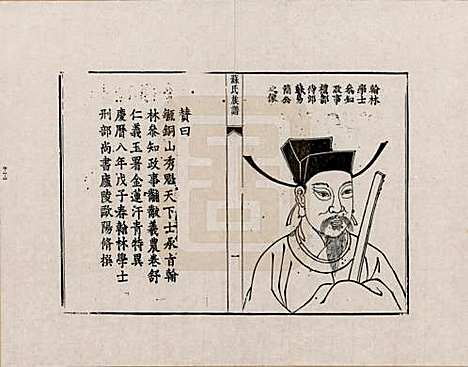 翰林
學士
叅知
政事
禮部
侍郎
蘇易
簡公
之像
蘇氏族譜
一
贊曰
銅山秀點天下士承旨翰
林叅知政事黼黻羲農卷舒
仁義玉署金蓮汗青特異
慶曆八年戊子春翰林學士
刑部尚書廬陵歐陽脩撰